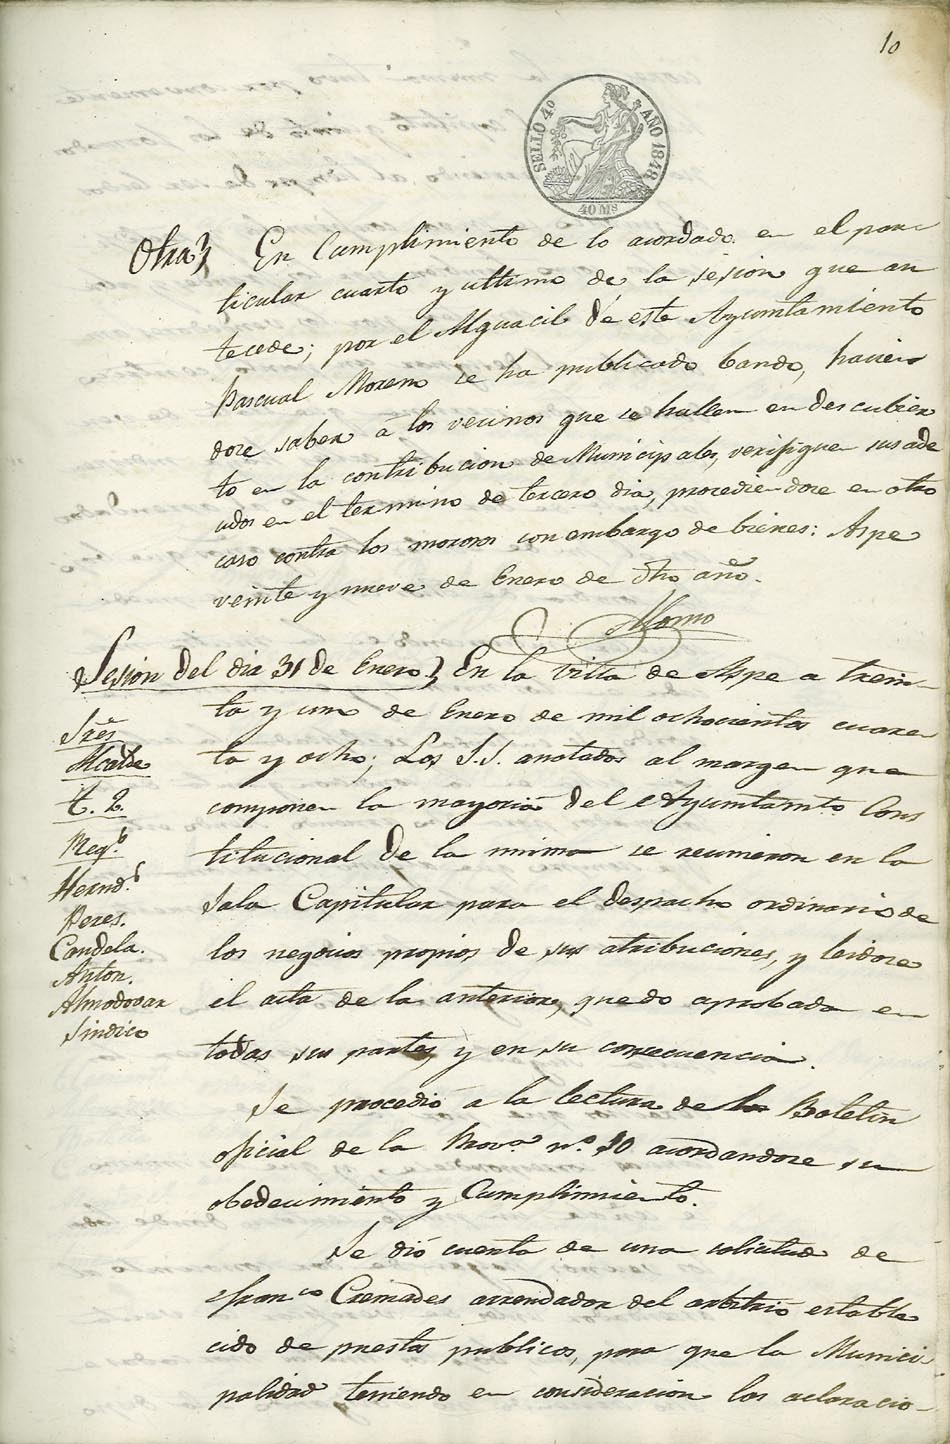 10
SELLO 4º AÑO 1848
40 Ms
Otra} En Cumplimiento de lo acordado en el par-
ticular cuarto y ultimo de la sesion que an
tecede; por el Alguacil de este Ayuntamiento
Pascual Moreno se ha publicado bando, hacien
dose saber á los vecinos que se hallen en descubier
to en la contribucion de Municipales, verifiquen sus ade
udos en el termino de tercero dia, procediendose en otro
caso contra los morosos con embargo de bienes: Aspe
veinte y nueve de Enero de dho año.
Sesion del dia 31 de Enero} En la villa de Aspe a trein-
ta y uno de Enero de mil ochocientos cuaren
ta y ocho; Los S.S. anotados al margen que
componen la mayoria del Ayuntamto Cons
titucional de la misma se reunieron en la
Sala Capitular para el despacho ordinario de
los negocios propios de sus atribuciones, y leidose
el acta de la anterior, quedo aprobada en
todas sus partes, y en su consecuencia.
Sres
Alcalde
t. 2.
Reg.s
Hernd.s
Peres.
Candela.
Anton.
Almodovar
Sindico
Se procedió a la lectura de la Boletin
oficial de la Prov.a n.o 10 acordandose su
obedecimiento y Cumplimiento.
Se dió cuenta de una solicitud de
Fran.co Cremades arrendador del arbitrio estable
cido de puestos publicos, para que la Munici
palidad teniendo en consideracion las aclaracio-